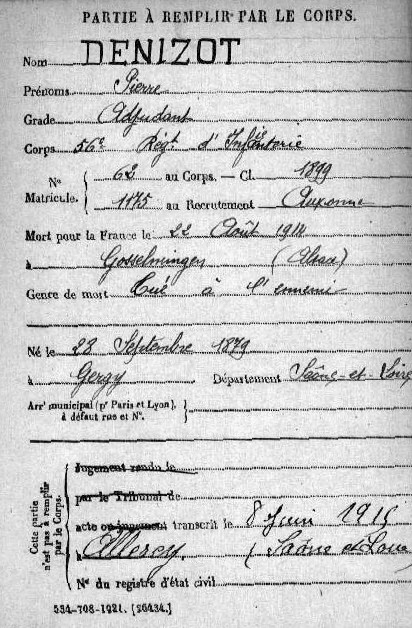 PARTIE À REMPLIR PAR LE CORPS.
Nom DENIZOT
Prénoms Pierre
Grade Adjudant
Corps 56e Régt d'Infanterie
No Matricule. 62 au Corps. — Cl. 1899
1175 au Recrutement Auxonne
Mort pour la France le 22 Août 1914
à Gosselmingen (Alsace)
Genre de mort Tué à l'ennemi
Né le 28 Septembre 1879
à Gergy Département Saône-et-Loire
Arrt municipal (pr Paris et Lyon), à défaut rue et No.
Cette partie n'est pas à remplir par le Corps.
Jugement rendu le
par le Tribunal de
acte ou jugement transcrit le 8 Juin 1915
à Allerey (Saône et Loire
No du registre d'état civil
534-708-1921. [26434.]